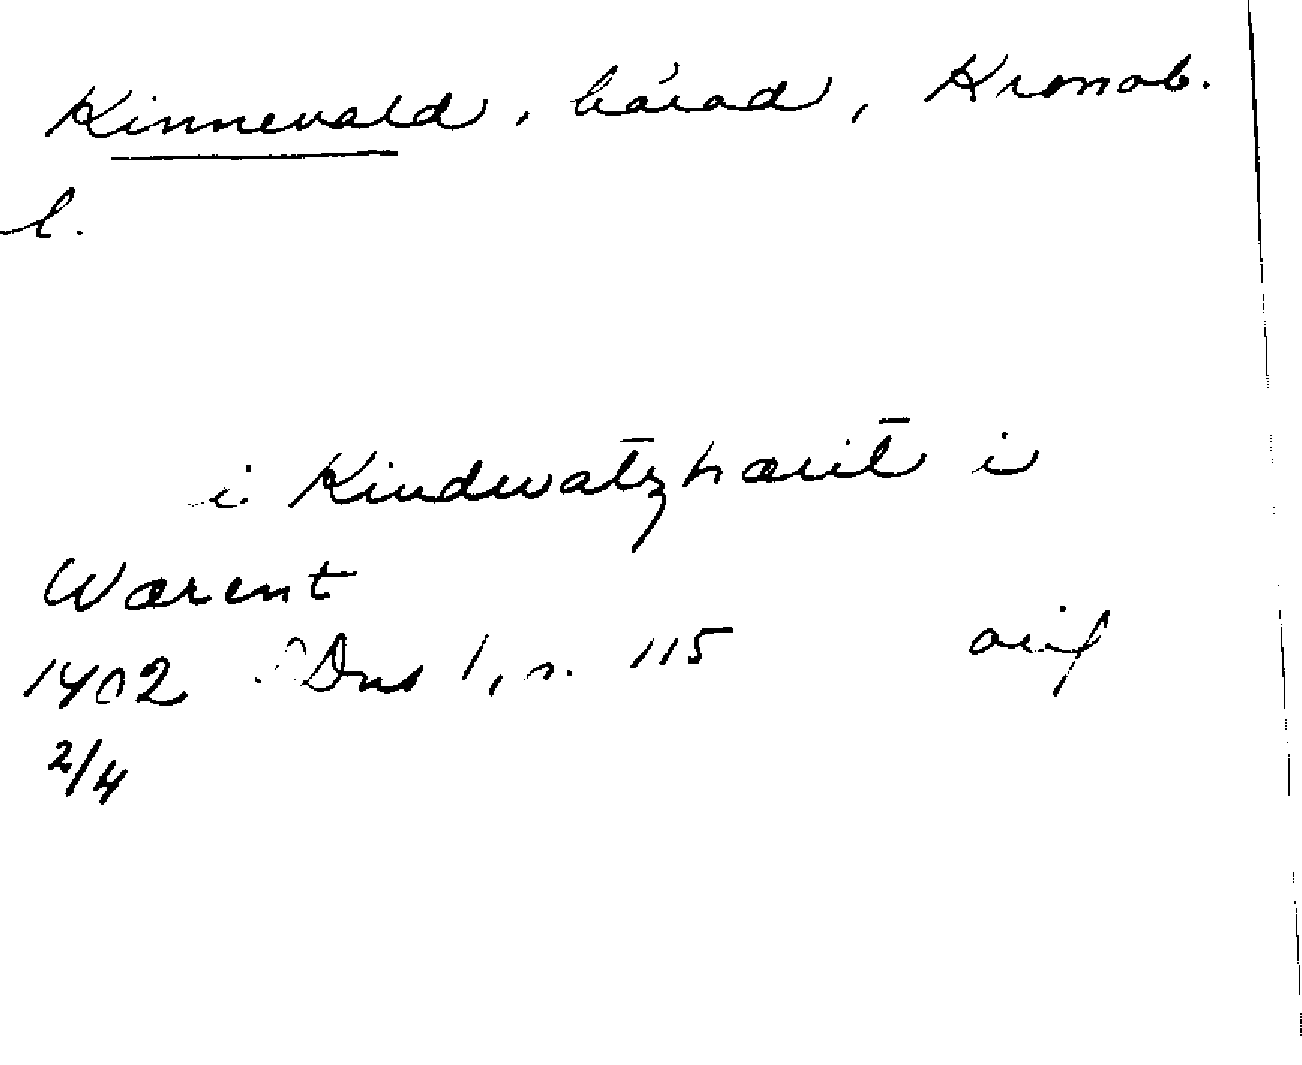 Kinnevald, härad, Kronob.
l.
i Kindwatz̄hærit̄ i
Wærent
1402 Dns 1, s. 115 orif
2/4